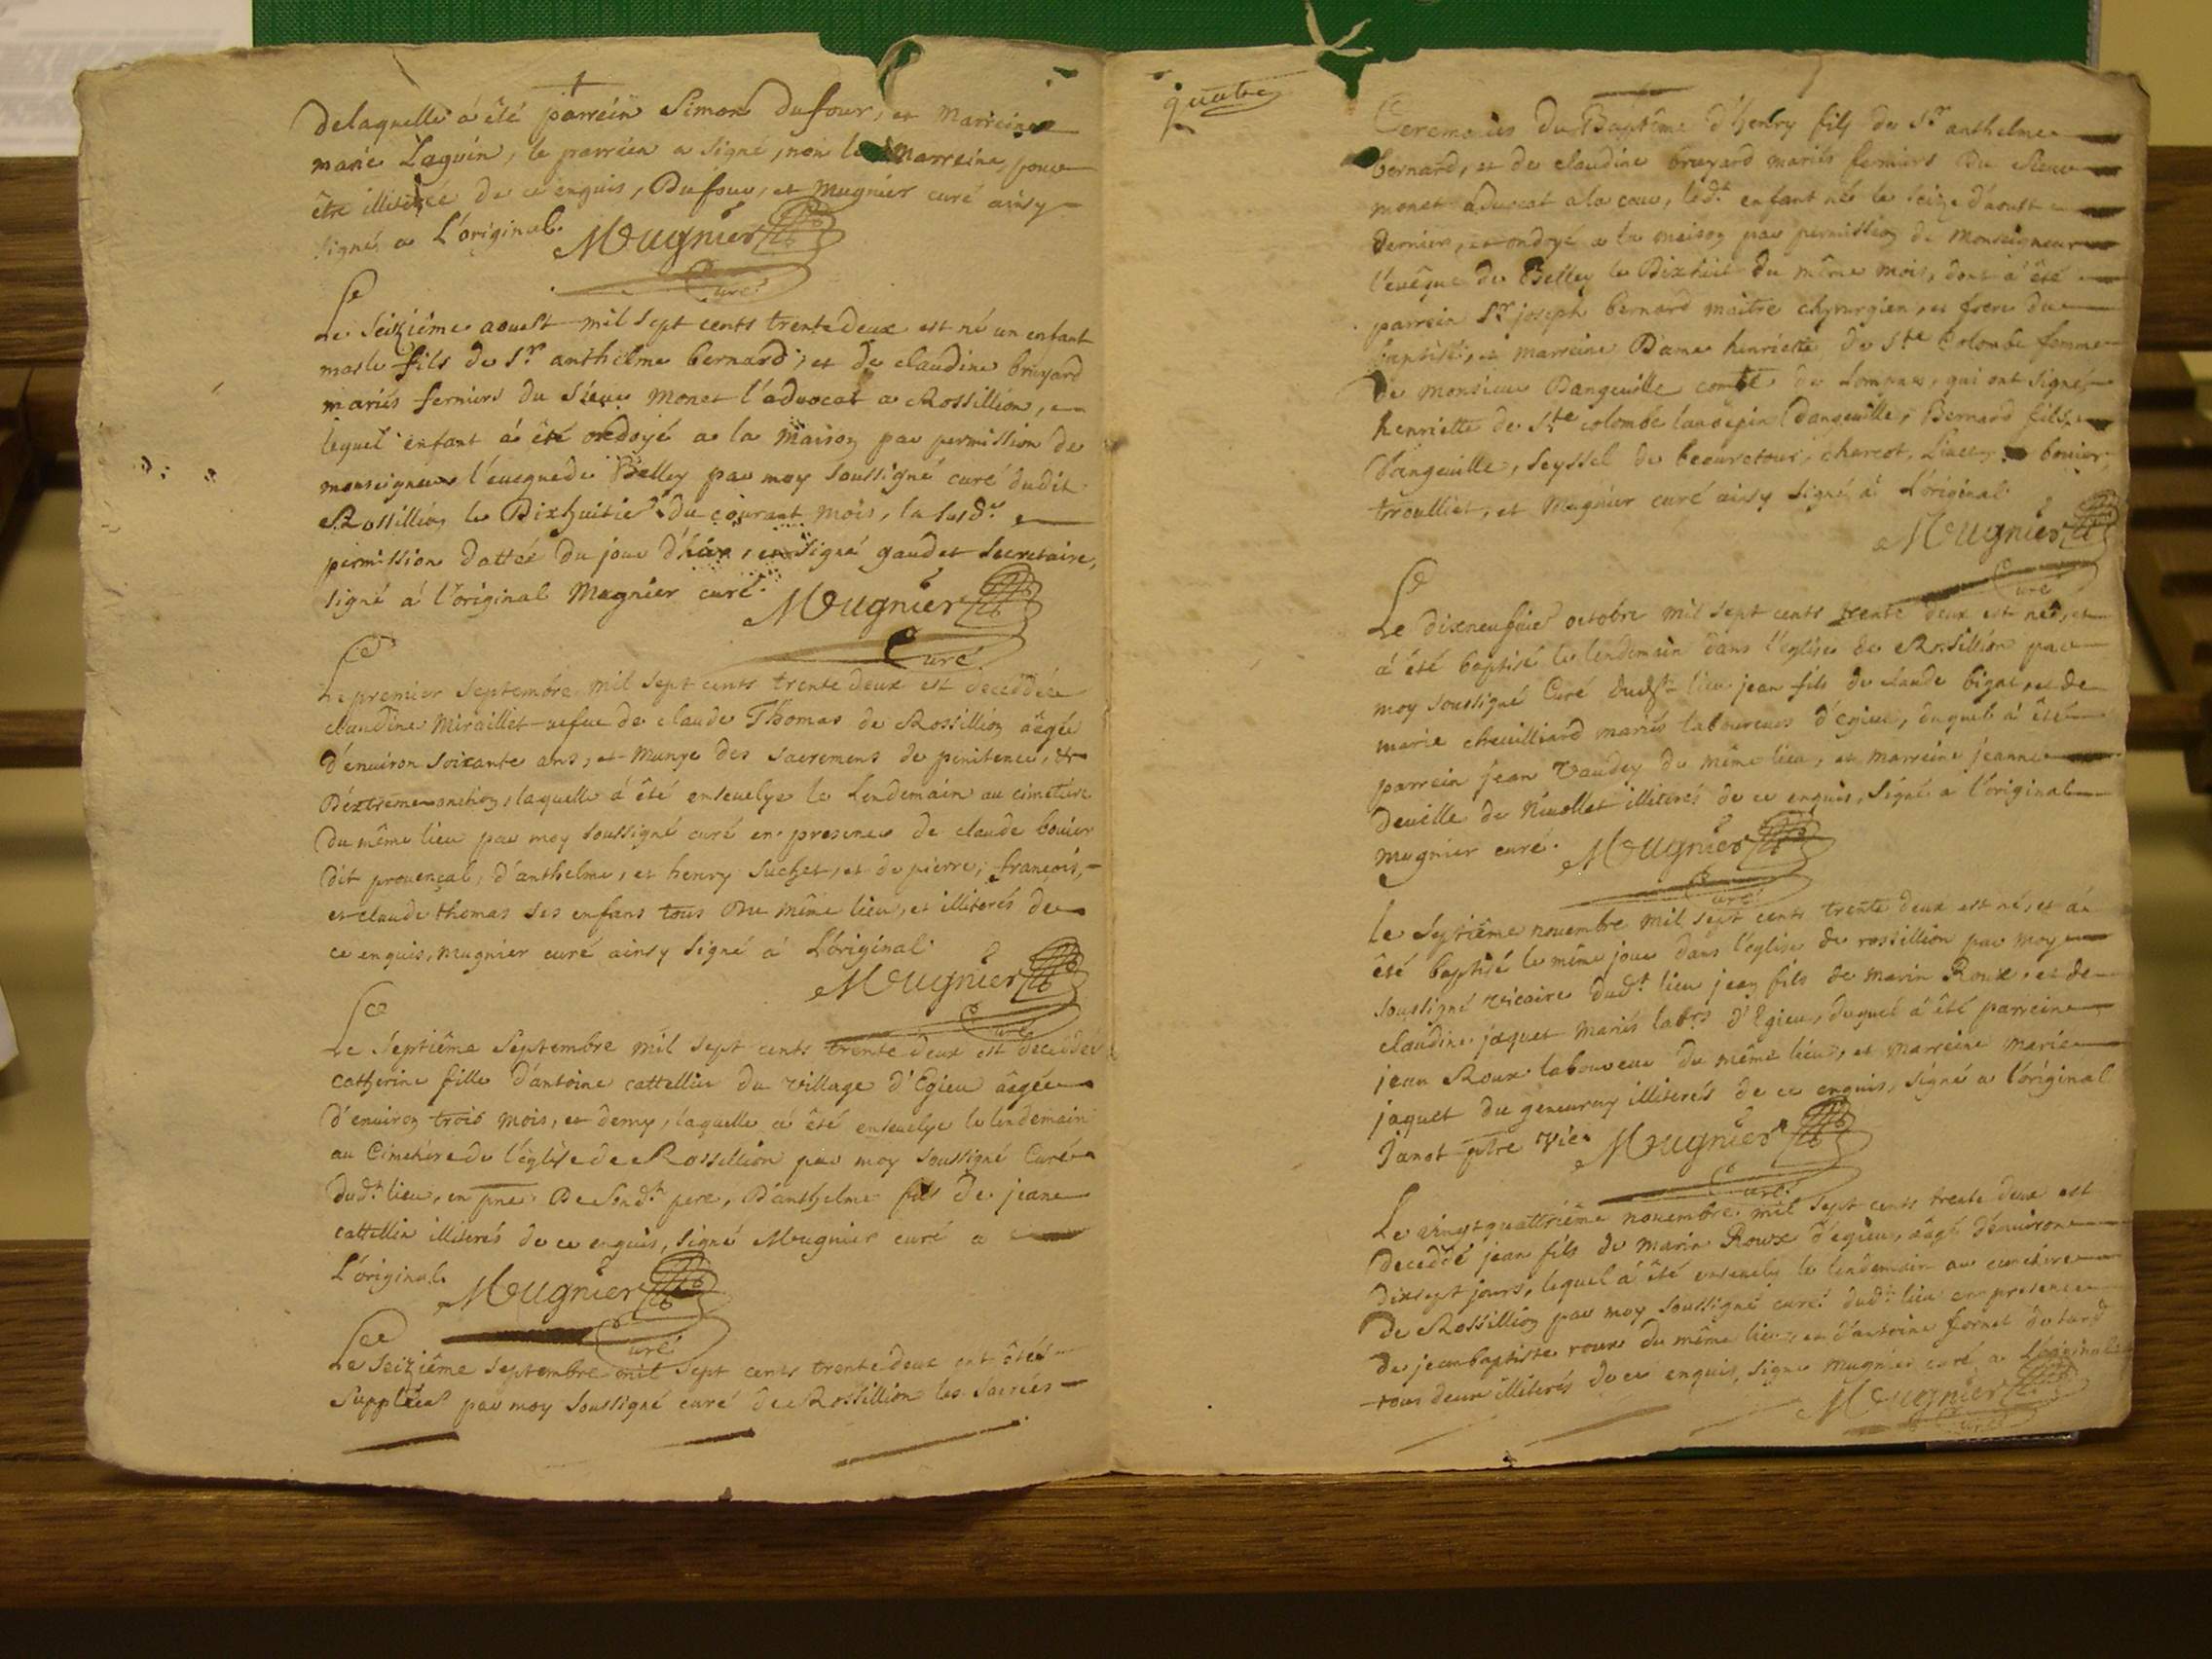 delaquelle á été parrein Simon Dufour, et Marreine
marie Laguin, le parrein a signé, non la Marreine, pour
être illiterée de ce enquis, Dufour, et mugnier curé ainsy
signés a L'original. Mugnier
Curé
Le Seiziême aoust mil sept cents trente deux est né un enfant
masle fils de Sr. anthelme bernard, et de claudine bruyard
mariés fermiers du Sieur monet l'advocat a Rossillion,
lequel enfant á été ondoyé a la maison par permission de
monseigneur l'evequede Belley par moy soussigné curé dudit
Rossillion le Dixhuitie. du courant mois, la susd.
permission dattée du jour d'hier, et signé gaudet secretaire,
signé á l'original Mugnier curé. Mugnier
Curé
Le premier septembre mil sept cents trente deux est deceddée
claudine Miraillet vefue de claude Thomas de Rossillion aêgée
d'enuiron soixante ans, et munye des sacremens de penitence, &
D'extreme onction, laquelle á été enseuelye le lendemain au cimetiere
du même lieu par moy soussigné curé en presence de claude bouier
dit prouençal, d'anthelme, et henry suchet, et de pierre, françois,
et claude thomas ses enfans tous du même lieu, et illiterés de
ce enquis, mugnier curé ainsy signé á L'original.
Mugnier
Curé
Le Septiême Septembre mil sept cents trente deux est deceddée
catherine fille d'antoine cattellin du village d'Egieu aêgée
d'enuiron trois mois, et demy, laquelle á été enseuelye le lendemain
au Cimetiere de l'église de Rossillion par moy soussigné Curé
dud.t lieu, en pnce. De sond.t pere, D'anthelme fils de jeane
cattellin illiterés de ce enquis, signé Mugnier curé a
L'original. Mugnier
Curé
Le Seiziême Septembre mil sept cents trente deux ont étées
Supplées par moy soussigné curé de Rossillion les sacrées
quatre
Ceremonies du Baptême d'henry fils de Sr anthelme
bernard, et de claudine bruyard mariés fermiers du Sieur
monet advocat a la cour, led.t enfant né le seize d'aoust
dernier, et ondoyé a la maison par permission de Monseigneur
l'evêque de Belley le Dixhuit du même mois, dont á été
parrein Sr joseph bernard maitre chyrurgien, et frere du
baptisé, et marreine Dame henriette de Ste Colombe femme
de monsieur Dangeuille comte de Lompnes, qui ont signé,
henriette de Ste colombe laudepin dangeuille, Bernard fils,
Dangeuille, seyssel de beauretour, charcot, bouier,
trouilliet, et Mugnier curé ainsy signé á L'original.
Mugnier
Curé
Le dixneufuie octobre mil sept cents trente deux est né, et
á été baptisé le lendemain dans l'eglise de Rossillion par
moy soussigné Curé dud.t lieu jean fils de claude bigat, et de
marie cheuilliard mariés laboureurs d'egieu, duquel á été
parrein jean Vaudey du même lieu, et marreine jeanne
deuille de Neuollet illiterés de ce enquis, signé a l'original
mugnier curé. Mugnier
Curé
Le Septiême nouembre mil sept cents trente deux est né, et á
été baptisé le même jour dans l'eglise de rossillion par moy
soussigné vicaire dud.t lieu jean fils de marin Roux, et de
claudine jaquet mariés labrs d'Egieu, duquel á été parrein
jean Roux laboureur du même lieu, et marreine marie
jaquet du geneuray illiterés de ce enquis, signé a l'original
Janot ptre vic. Mugnier
Curé
Le vingtquattriême nouembre mil sept cents trente deux est
deceddé jean fils de marin Roux d'egieu, aâgé d'enuiron
dixsept jours, lequel á été enseuely le lendemain au cimetiere
de Rossillion par moy soussigné curé dud.t lieu en presence
de jeanbaptiste roux du même lieu, et d'antoine fornet
tous deux illiterés de ce enquis, signé mugnier curé a L'original.
Mugnier
Curé